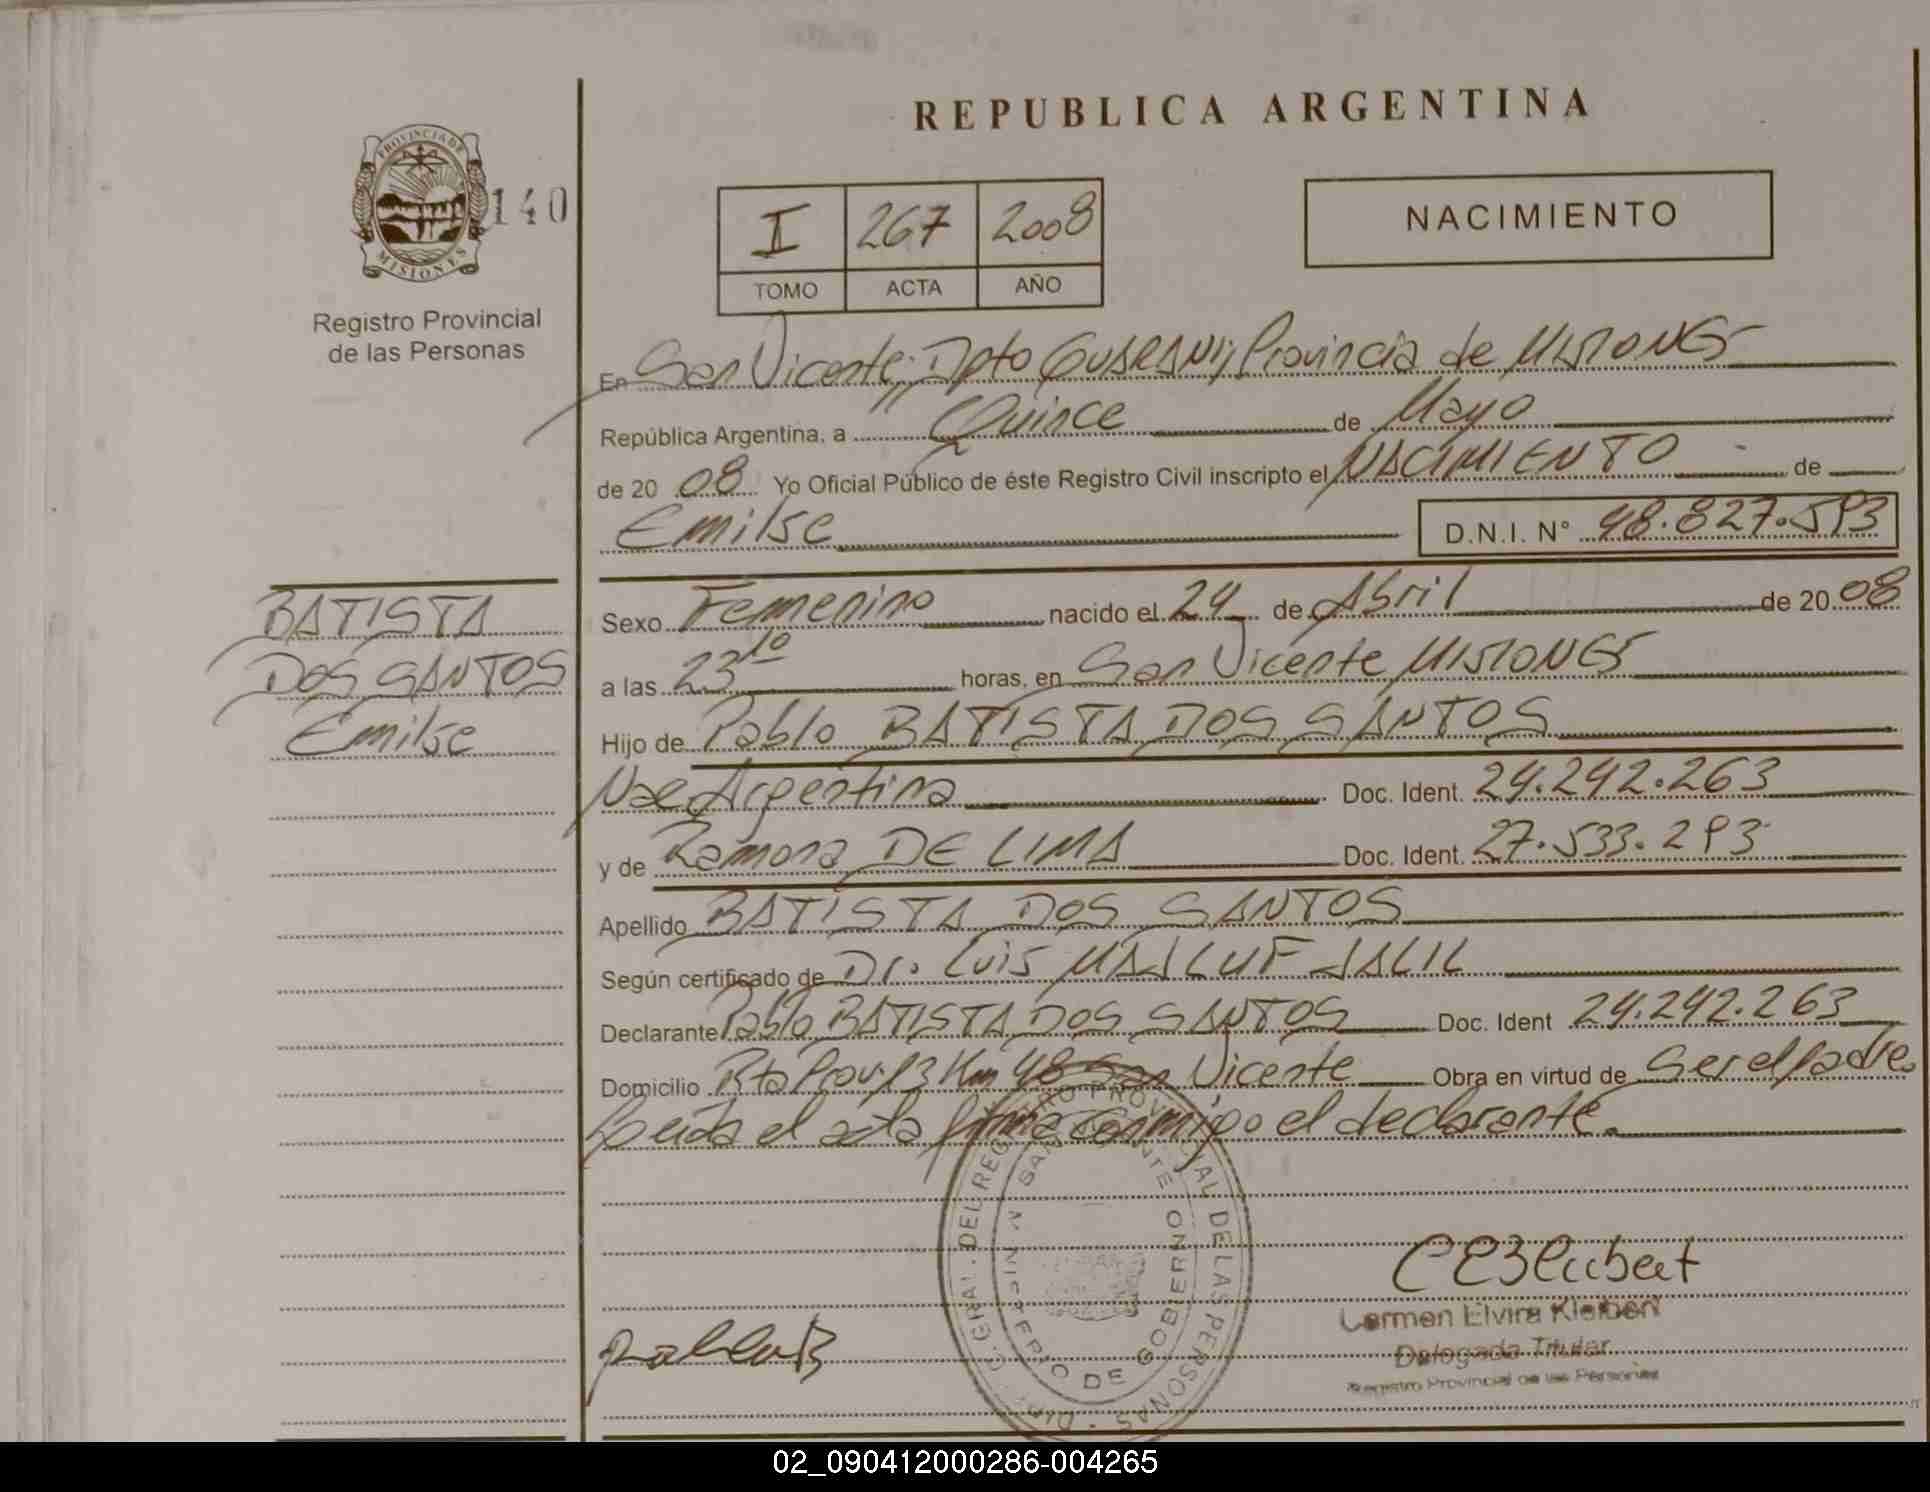 REPUBLICA ARGENTINA
PROVINCIA DE
MISIONES
140
Registro Provincial
de las Personas
I 267 2008
TOMO ACTA AÑO
NACIMIENTO
En San Vicente, Dpto GUARANI, Provincia de MISIONES
República Argentina, a Quince de Mayo
de 20 08 Yo Oficial Público de éste Registro Civil inscripto el NACIMIENTO de
Emilse D.N.I. Nº 48.827.593
BATISTA
DOS SANTOS
Emilse
Sexo Femenino nacido el 24 de Abril de 20 08
a las 23 10 horas, en San Vicente MISIONES
Hijo de Pablo BATISTA DOS SANTOS
Nac Argentina Doc. Ident. 24.242.263
y de Ramona DE LIMA Doc. Ident. 27.533.293
Apellido BATISTA DOS SANTOS
Según certificado de Dr. Luis MAJLUF JALIL
Declarante Pablo BATISTA DOS SANTOS Doc. Ident 24.242.263
Domicilio Rta Prov. 13 Km 48 San Vicente Obra en virtud de Ser el padre.
Leida el acta firma conmigo el declarante.
DIR. GRAL. DEL REGISTRO PROVINCIAL DE LAS PERSONAS
SAN VICENTE
MINISTERIO DE GOBIERNO
Carmen Elvira Kleibert
Delegada Titular
Registro Provincial de las Personas
Pablo B
02_090412000286-004265